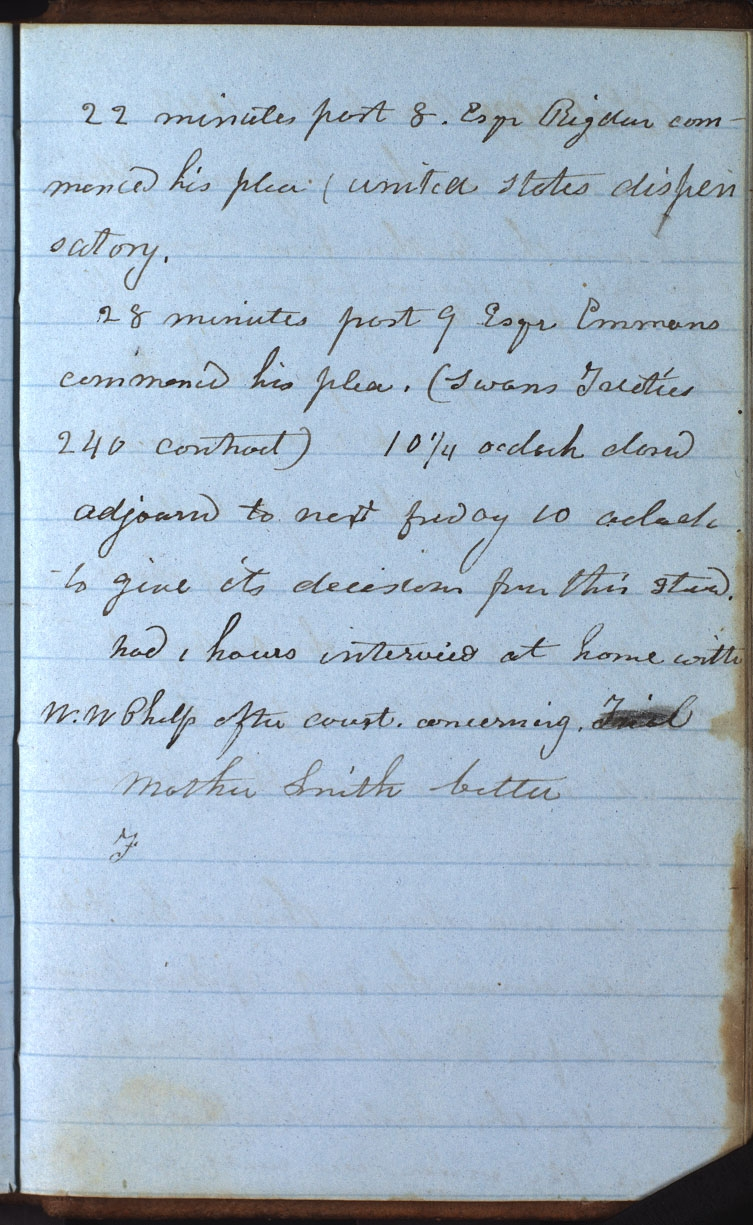 22 minutes past 8. Esqr Rigdon com-
menced his plea (united states dispen
satory.
28 minutes past 9 Esqr Emmons
commenced his plea. (Swans Treaties
240 contract) 10 1/4 oclock closed
adjourned to next friday 10 oclock.
to give its decision
had 1 hours interview at home with
W. W Phelps after court. concerning. Trial
Mother Smith better
F